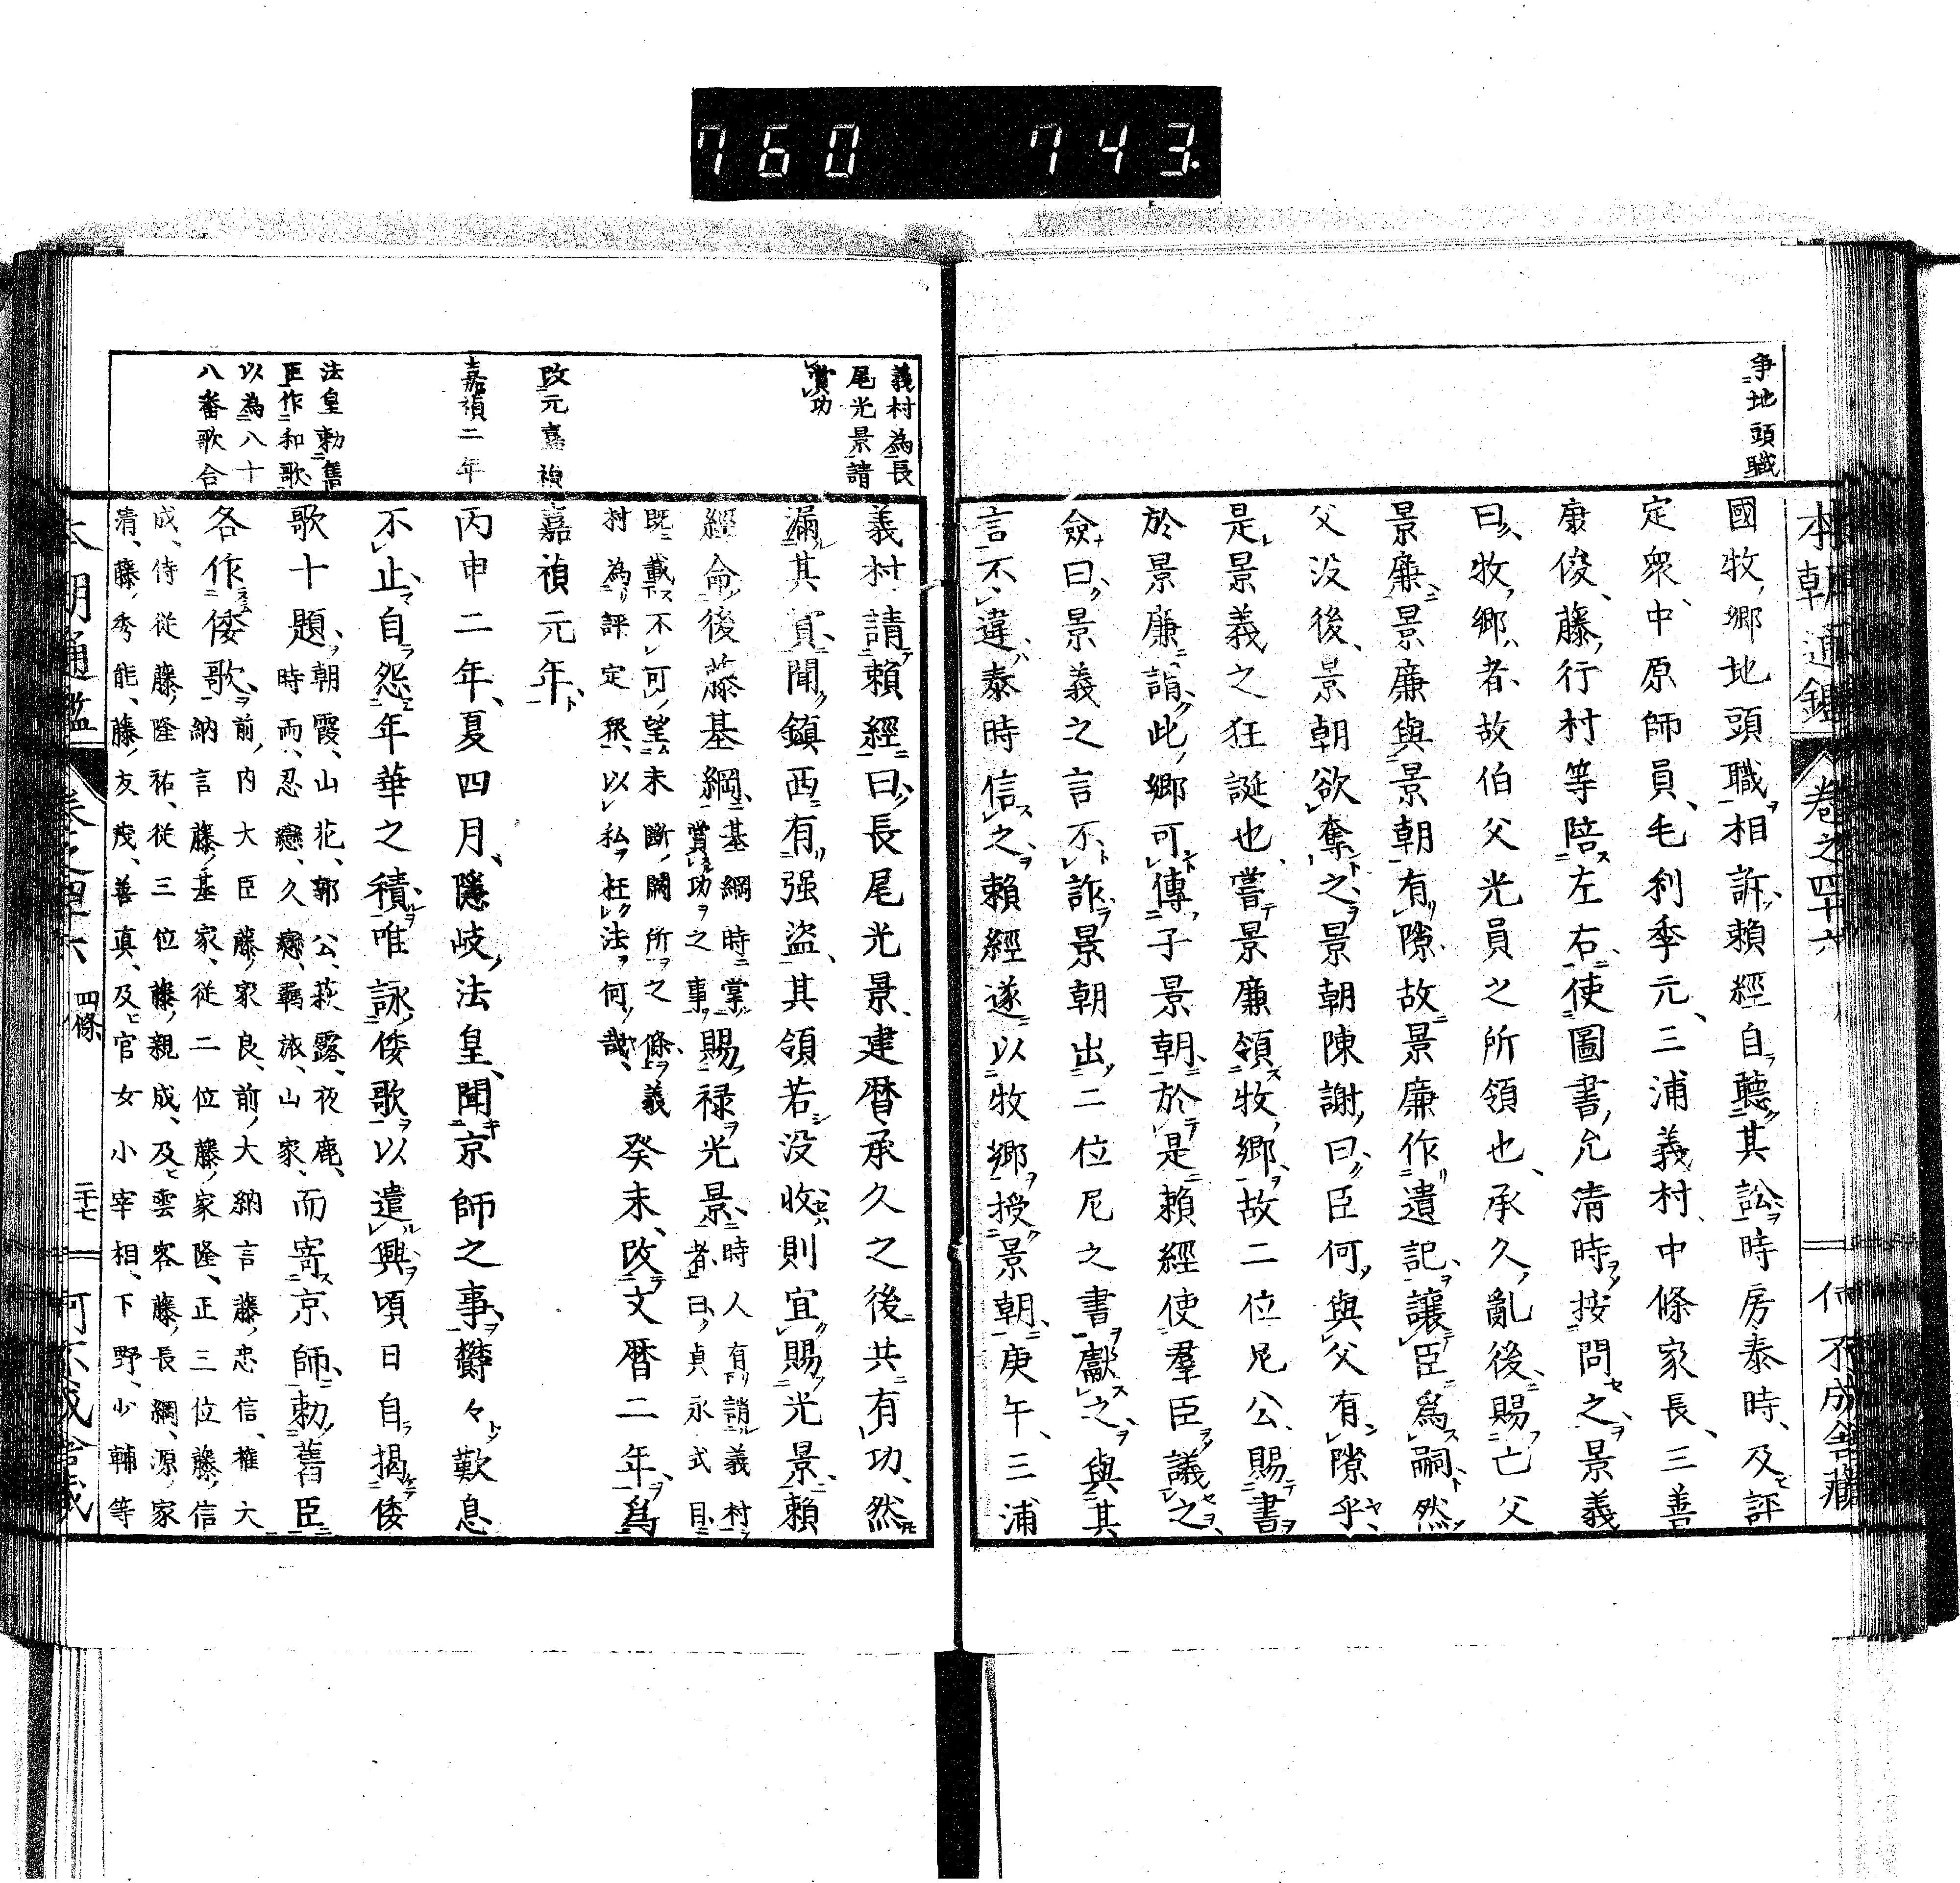 760 743.
本朝通鑑 卷之四十六 何不成舍藏
爭地頭職
國牧鄉地頭職相訴賴經自聽其訟時房泰時及評
定衆中原師員毛利季元三浦義村中條家長三善
康俊藤行村等陪左右使圖書允清時按問之景義
曰牧鄉者故伯父光員之所領也承久亂後賜亡父
景廉景廉與景朝有隙故景廉作遺記讓臣爲嗣然
父没後景朝欲奪之景朝陳謝曰臣何與父有隙乎
是景義之狂誕也嘗景廉領牧鄉故二位尼公賜書
於景廉謂此鄉可傳子景朝於是賴經使羣臣議之
僉曰景義之言不詐景朝出二位尼之書獻之與其
言不違泰時信之賴經遂以牧鄉授景朝庚午三浦
義村為長
尾光景請
賞功
改元嘉禎
嘉禎二年
法皇勅舊
臣作和歌
以為八十
八番歌合
義村請賴經曰長尾光景建曆承久之後共有功然
漏其賞聞鎮西有强盗其領若没收則宜賜光景賴
經命後藤基綱基綱時掌賞功之事賜禄光景時人有誚義村者曰貞永式目
既載不可望未斷闕所之條義村為評定衆以私枉法何哉癸未改文曆二年爲
嘉禎元年
丙申二年夏四月隱岐法皇聞京師之事欝々歎息
不止自怨年華之積唯詠倭歌以遣興頃日自揭倭
歌十題朝霞山花郭公萩露夜鹿時雨忍戀久戀羇旅山家而寄京師勅舊臣
各作倭歌前内大臣藤家良前大納言藤忠信權大納言藤基家從二位藤家隆正三位藤信
成侍從藤隆祐從三位藤親成及雲客藤長綱源家
清藤秀能藤友茂善真及官女小宰相下野少輔等
本朝通鑑 卷之四十六 四條 二十七 何不成舍藏